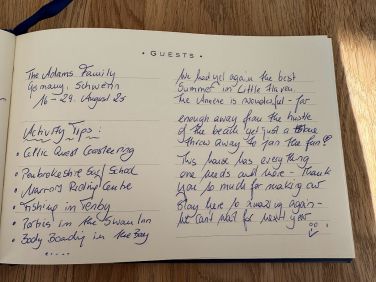 • GUESTS •
The Adams Family
Germany, Schwerin
16 - 29. August 25
Activity Tips:
• Celtic Quest Coasteering
• Pembrokeshire Surf School
• Narrows Riding Centre
• Fishing in Tenby
• Potties in the Swan Inn
• Body Boarding in the Bay
We had yet again the best
Summer in Little Haven
The is wonderful - far
enough away from the hustle
of the beach yet just a stone
throw away to join the fun!
This house has everything
one needs and more - Thank
you so much for making our
Stay here so amazing again -
We can't wait for next year